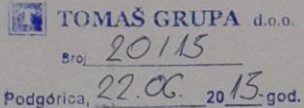 TOMAŠ GRUPA d.o.o.
Broj 20/15
Podgorica, 22.06. 2015-god.